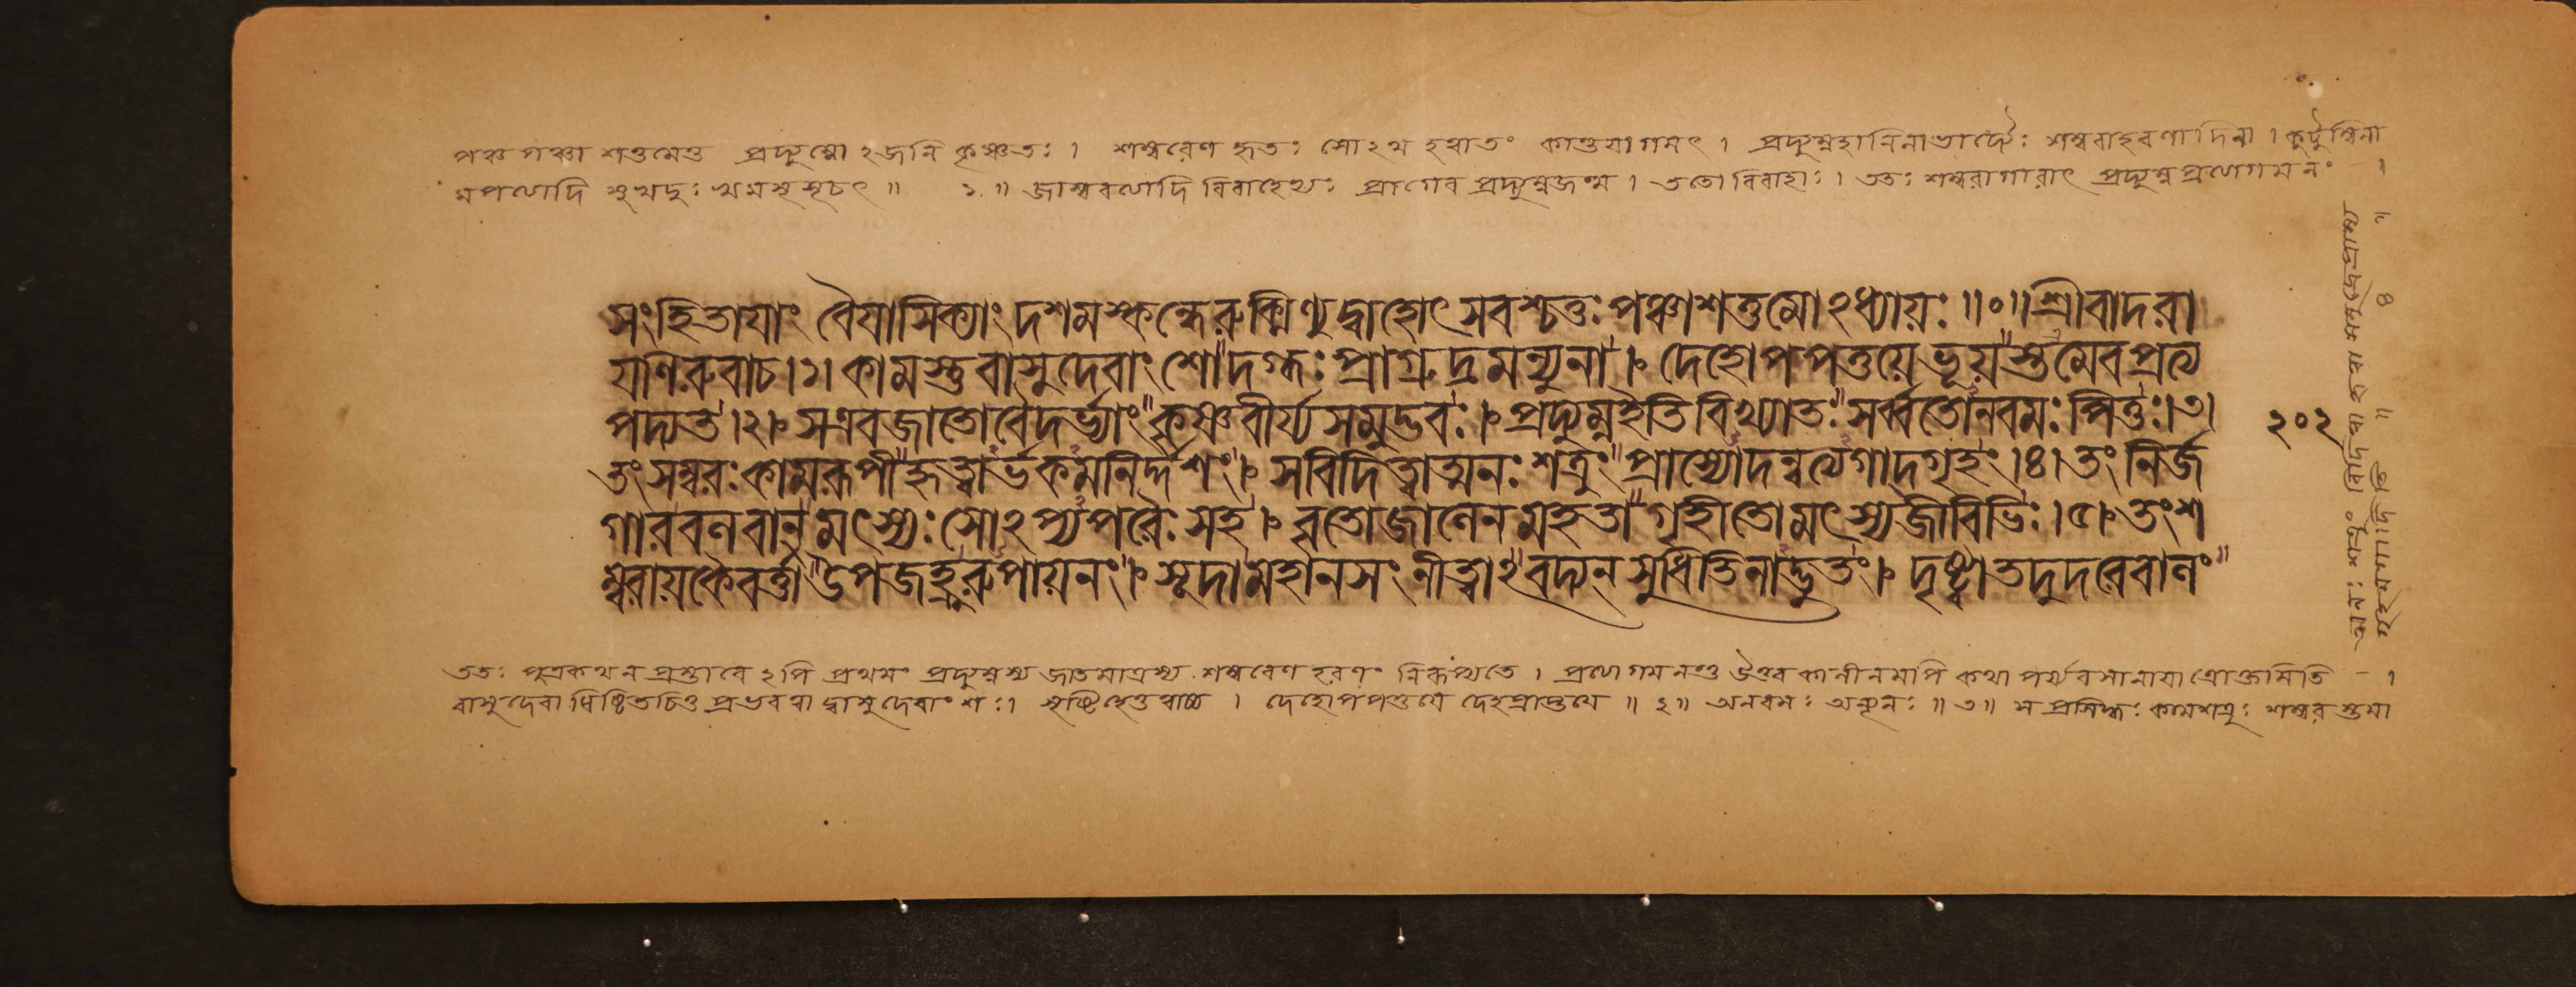 পঞ্চপঞ্চাশত্তমেতু প্রদ্যুম্নো ঽজনি কৃষ্ণতঃ । শম্বরেণ হৃতঃ সোঽথ হত্বাতং কান্তয়াগমৎ । প্রদ্যুম্নহানিনাভাদ্যৈঃ শম্বরাহরণাদিনা । কুটুম্বিনা
মপত্যাদি সুখদুঃখমসূসূচৎ ॥ ১ ॥ জাম্ববত্যাদি বিবাহেভ্যঃ প্রাগেব প্রদ্যুম্নজন্ম । ততো বিবাহাঃ । ততঃ শম্বরাগারাৎ প্রদ্যুম্নপ্রত্যাগমনং ।
সংহিতায়াং বৈয়াসিক্যাং দশমস্কন্ধেরুক্মিণ্যুদ্বাহোৎসবশ্চতুঃপঞ্চাশত্তমোঽধ্যায়ঃ ॥০॥ শ্রীবাদরা
য়ণিরুবাচ।১। কামস্তুবাসুদেবাংশো দগ্ধঃপ্রাগ্রুদ্রমন্যুনা । দেহোপপত্তয়েভূয়স্তমেবপ্রত্য
পদ্যত ।২। সএবজাতোবৈদর্ভ্যাং কৃষ্ণবীর্য্যসমুদ্ভবঃ । প্রদ্যুম্নইতিবিখ্যাতঃ সর্ব্বতোনবমঃপিতুঃ।৩।
তংসম্বরঃকামরূপী হৃত্বার্ভকমনির্দ্দশং । সবিদিত্বাত্মনঃশত্রুং প্রাস্যোদন্বত্যগাদগৃহং।৪। তং নির্জ
গারবলবান্ মৎস্যঃসোঽপ্যপরৈঃসহ । বৃতোজালেনমহতা গৃহীতোমৎস্যজীবিভিঃ ।৫। তংশ
ম্বরায়কৈবর্ত্তা উপজহ্রুরুপায়নং । সূদামহানসংনীত্বাঽবদ্যন্ সুধিতিনাদ্ভুতং । দৃষ্ট্বাতদুদরেবালং
২০২
ততঃ পুত্রকথনপ্রস্তাবে ঽপি প্রথমং প্রদ্যুম্নস্য জাতমাত্রস্য শম্বরেণ হরণং নিরূপ্যতে । প্রত্যাগমনন্তু উত্তরকালীনমপি কথা পর্য্যবসানায়াত্রোক্তমিতি ।
বাসুদেবাধিষ্ঠিতচিত্তপ্রভবত্বাদ্বাসুদেবাংশঃ। সৃষ্টিহেতুত্বাচ্চ । দেহোপপত্তয়ে দেহপ্রাপ্তয়ে ॥ ২॥ অনবমঃ অন্যূনঃ ॥ ৩॥ স প্রসিদ্ধঃ কামশত্রুঃ শম্বর স্তমা